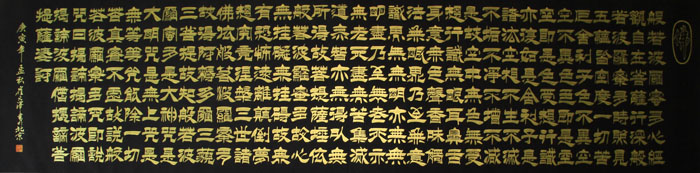 般若波羅蜜多心經
觀自在菩薩行深般
若波羅蜜多時照見
五蘊皆空度一切苦
厄舍利子色不異空
空不異色色即是空
空即是色受想行識
亦復如是舍利子是
諸法空相不生不滅
不垢不淨不增不減
是故空中無色無受
想行識無眼耳鼻舌
身意無色聲香味觸
法無眼界乃至無意
識界無無明亦無無
明盡乃至無老死亦
無老死盡無苦集滅
道無智亦無得以無
所得故菩提薩埵依
般若波羅蜜多故心
無罣礙無罣礙故無
有恐怖遠離顛倒夢
想究竟涅槃三世諸
佛依般若波羅蜜多
故得阿耨多羅三藐
三菩提故知般若波
羅蜜多是大神咒是
大明咒是無上咒是
無等等咒能除一切
苦真實不虛故說般
若波羅蜜多咒即說
咒曰揭諦揭諦波羅
揭諦波羅僧揭諦菩
提薩婆訶
庚寅年孟秋